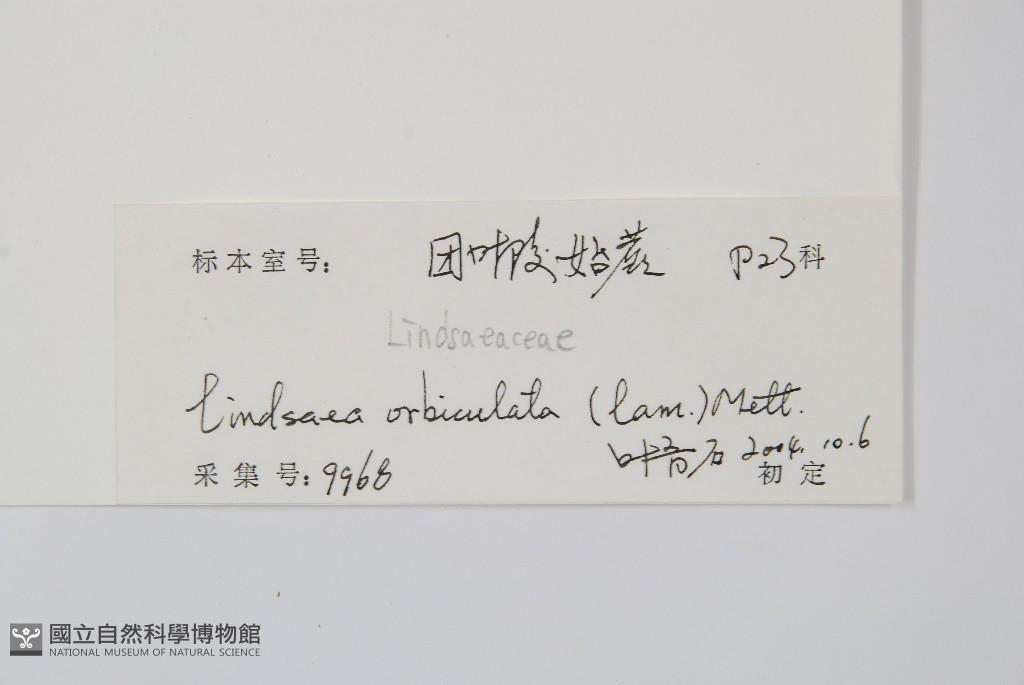 标本室号: 团叶陵始蕨 P23科
Lindsaeaceae
Lindsaea orbiculata (Lam.) Mett.
叶育石 2004.10.6
采集号: 9968 初定
國立自然科學博物館
NATIONAL MUSEUM OF NATURAL SCIENCE